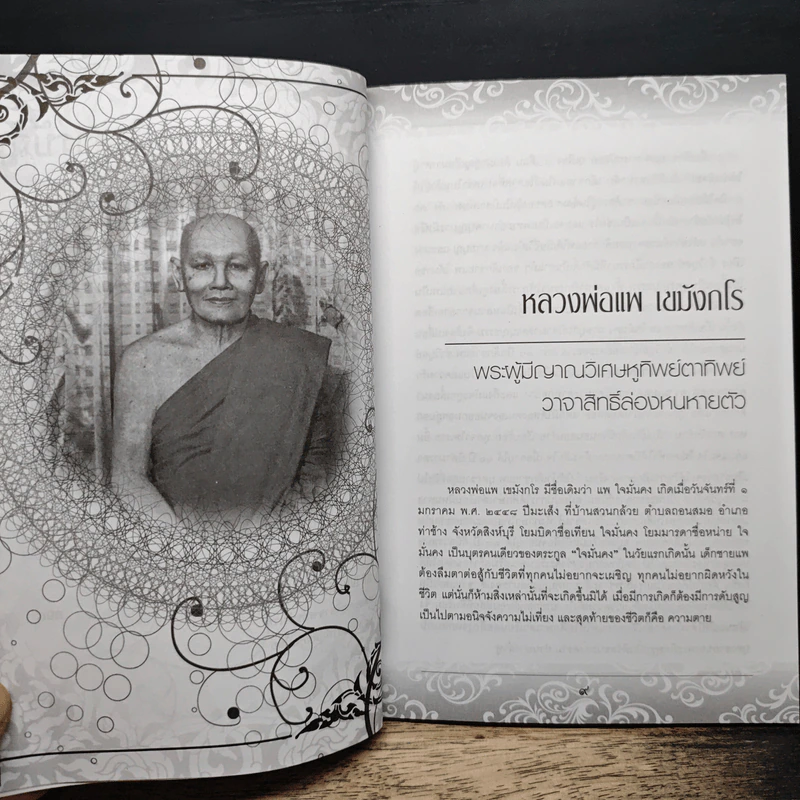 หลวงพ่อแพ เขมังกโร
พระผู้มีญาณวิเศษหูทิพย์ตาทิพย์
วาจาสิทธิ์ล่องหนหายตัว
หลวงพ่อแพ เขมังกโร มีชื่อเดิมว่า แพ ใจมั่นคง เกิดเมื่อวันจันทร์ที่ ๑
มกราคม พ.ศ. ๒๔๔๘ ปีมะเส็ง ที่บ้านสวนกล้วย ตำบลถอนสมอ อำเภอ
ท่าช้าง จังหวัดสิงห์บุรี โยมบิดาชื่อเทียน ใจมั่นคง โยมมารดาชื่อหน่าย ใจ
มั่นคง เป็นบุตรคนเดียวของตระกูล “ใจมั่นคง” ในวัยแรกเกิดนั้น เด็กชายแพ
ต้องลืมตาต่อสู้กับชีวิตที่ทุกคนไม่อยากจะเผชิญ ทุกคนไม่อยากผิดหวังใน
ชีวิต แต่นั่นก็ห้ามสิ่งเหล่านั้นที่จะเกิดขึ้นมิได้ เมื่อมีการเกิดก็ต้องมีการดับสูญ
เป็นไปตามอนิจจังความไม่เที่ยง และสุดท้ายของชีวิตก็คือ ความตาย
๙